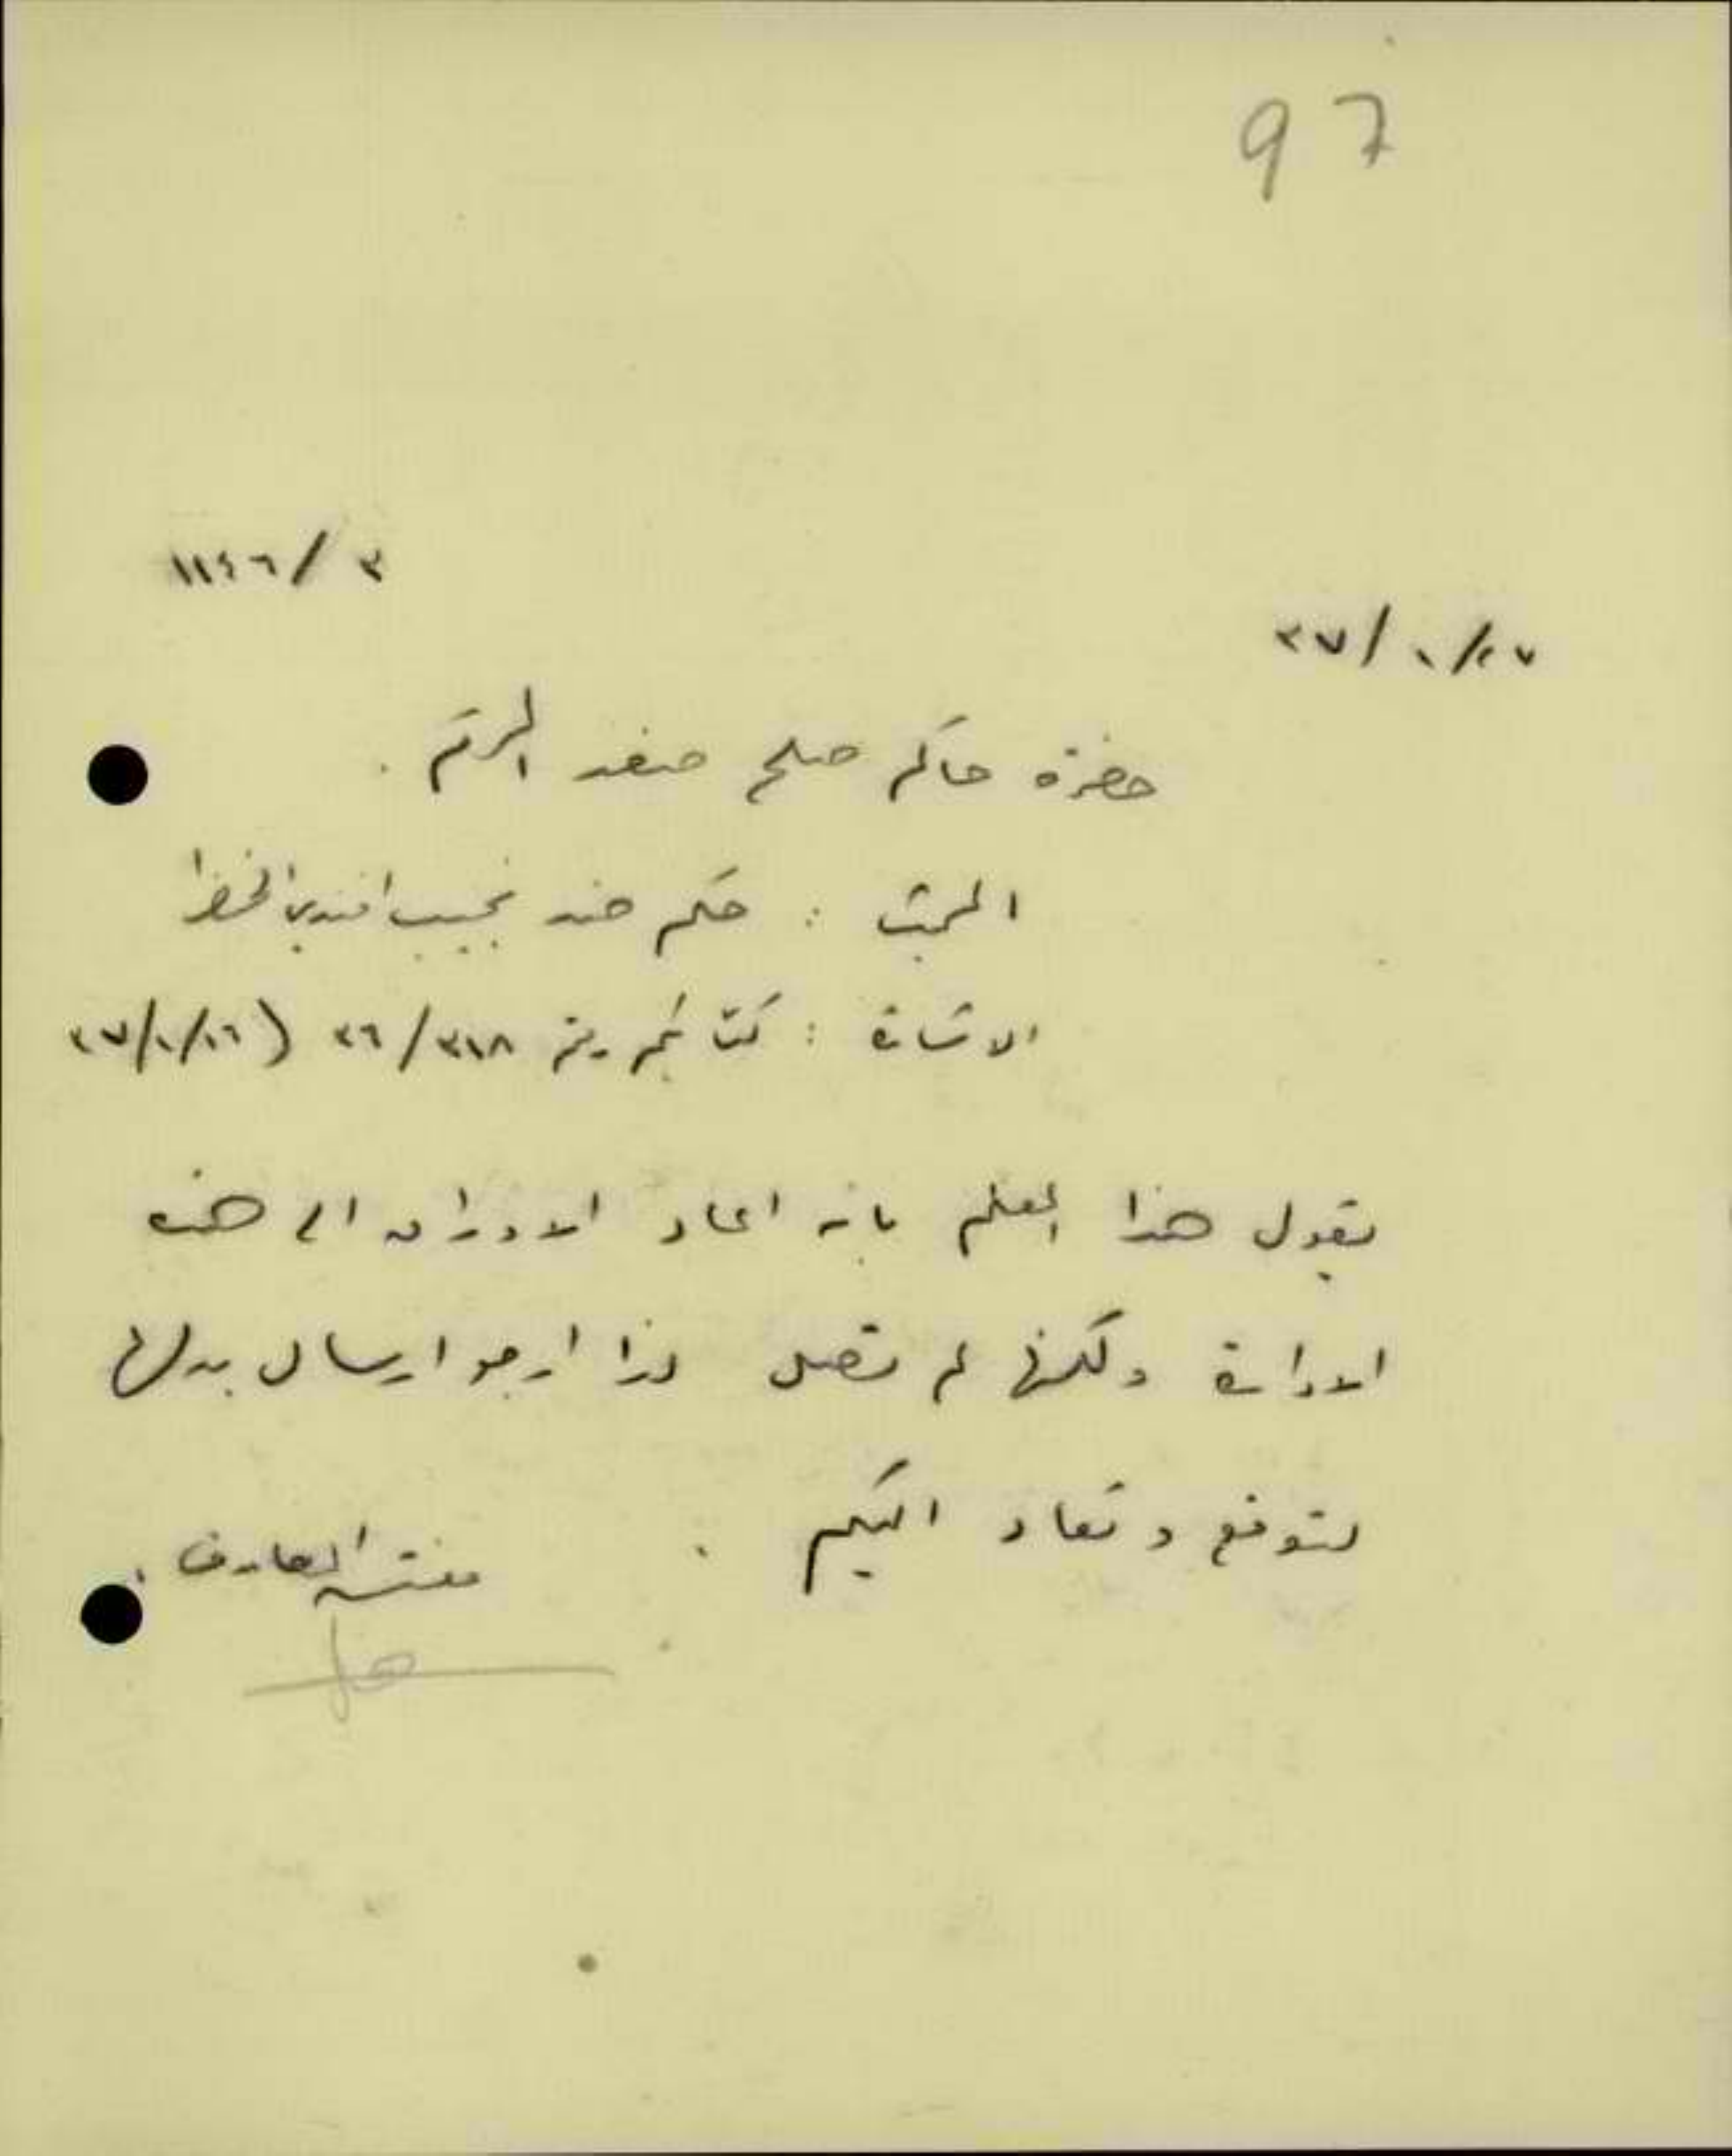 97
٣ / ١١٤٦
٢٧ / ١ / ٣٧
حضرة حاكم صلح صفد المحترم .
المبحث : حكم ضد نجيب افندي الخضرا
الاشارة : كتابكم رقم ٣١٨ / ٣٦ ( ١٦ / ١ / ٣٧
يقول هذا المعلم بانه اعاد الاوراق الى هذه
الادارة ولكنها لم تصل لذا ارجو ارسال بدلها
لتوقع وتعاد اليكم .
مفتش المعارف .